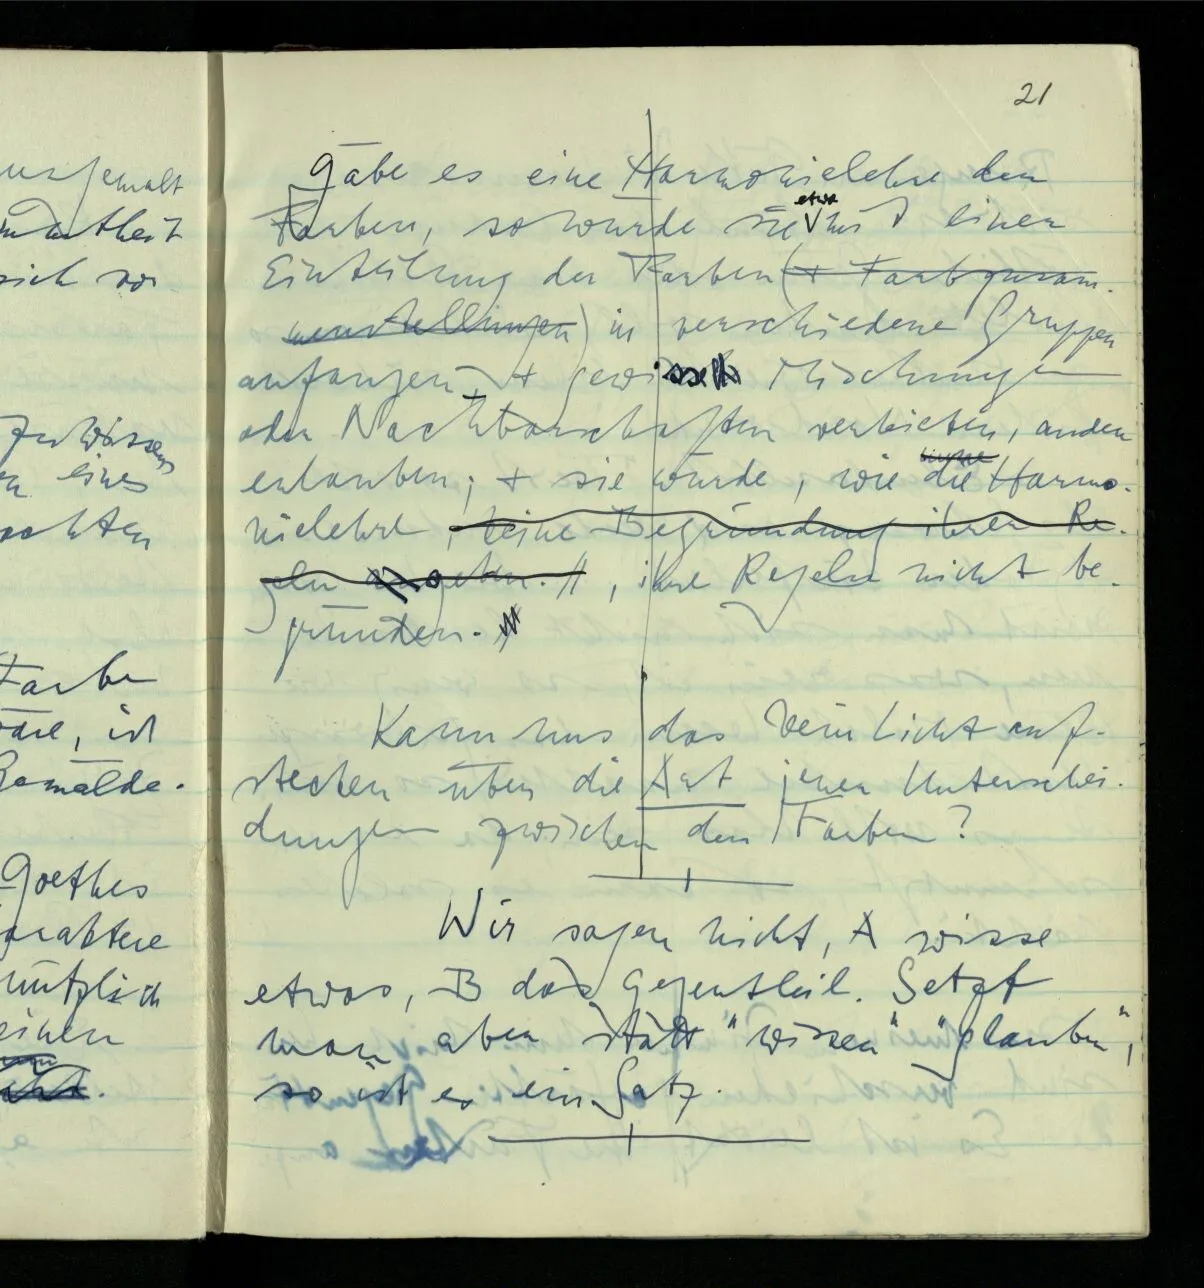 21
Gäbe es eine Harmonielehre der
Farben, so würde sie etwa mit einer
Einteilung der Farben (+ Farbzusam-
menstellungen) in verschiedene Gruppen
anfangen, + gewisse Mischungen
oder Nachbarschaften verbieten, andere
erlauben; + sie würde, wie die Harmo-
nielehre, keine Begründung ihrer Re-
geln angeben. //, ihre Regeln nicht be-
gründen.
Kann uns das kein Licht auf-
stecken über die Art jener Unterschei-
dungen zwischen den Farben?
Wir sagen nicht, A wisse
etwas, B das Gegenteil. Setzt
man aber statt "wissen" "glauben",
so ist es ein Satz.
ausgemalt
sich vor
zu wissen
eines
Farbe
wäre, ist
Gemälde.
Goethes
Charaktere
nützlich
einen